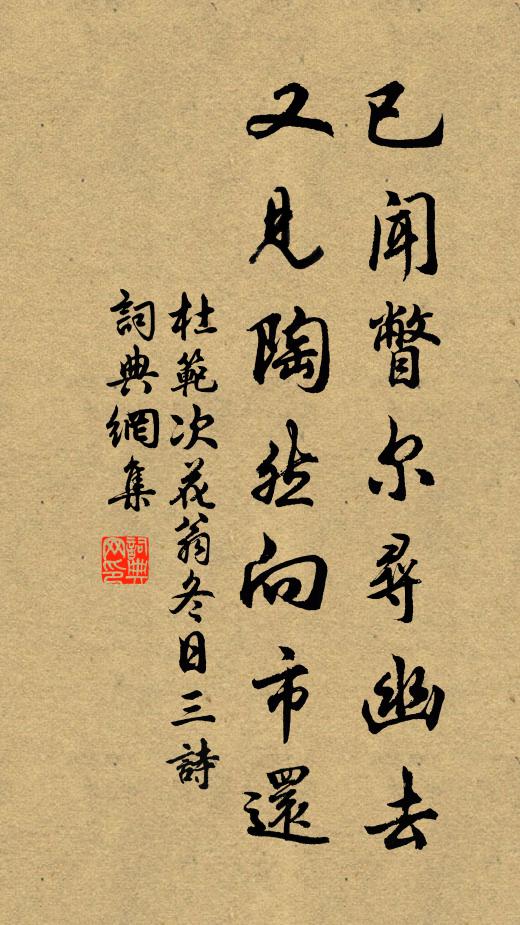 已聞瞥尔尋幽去
又見陶然向市還
杜範次花翁冬日三詩
詞典網集
詞典
网印